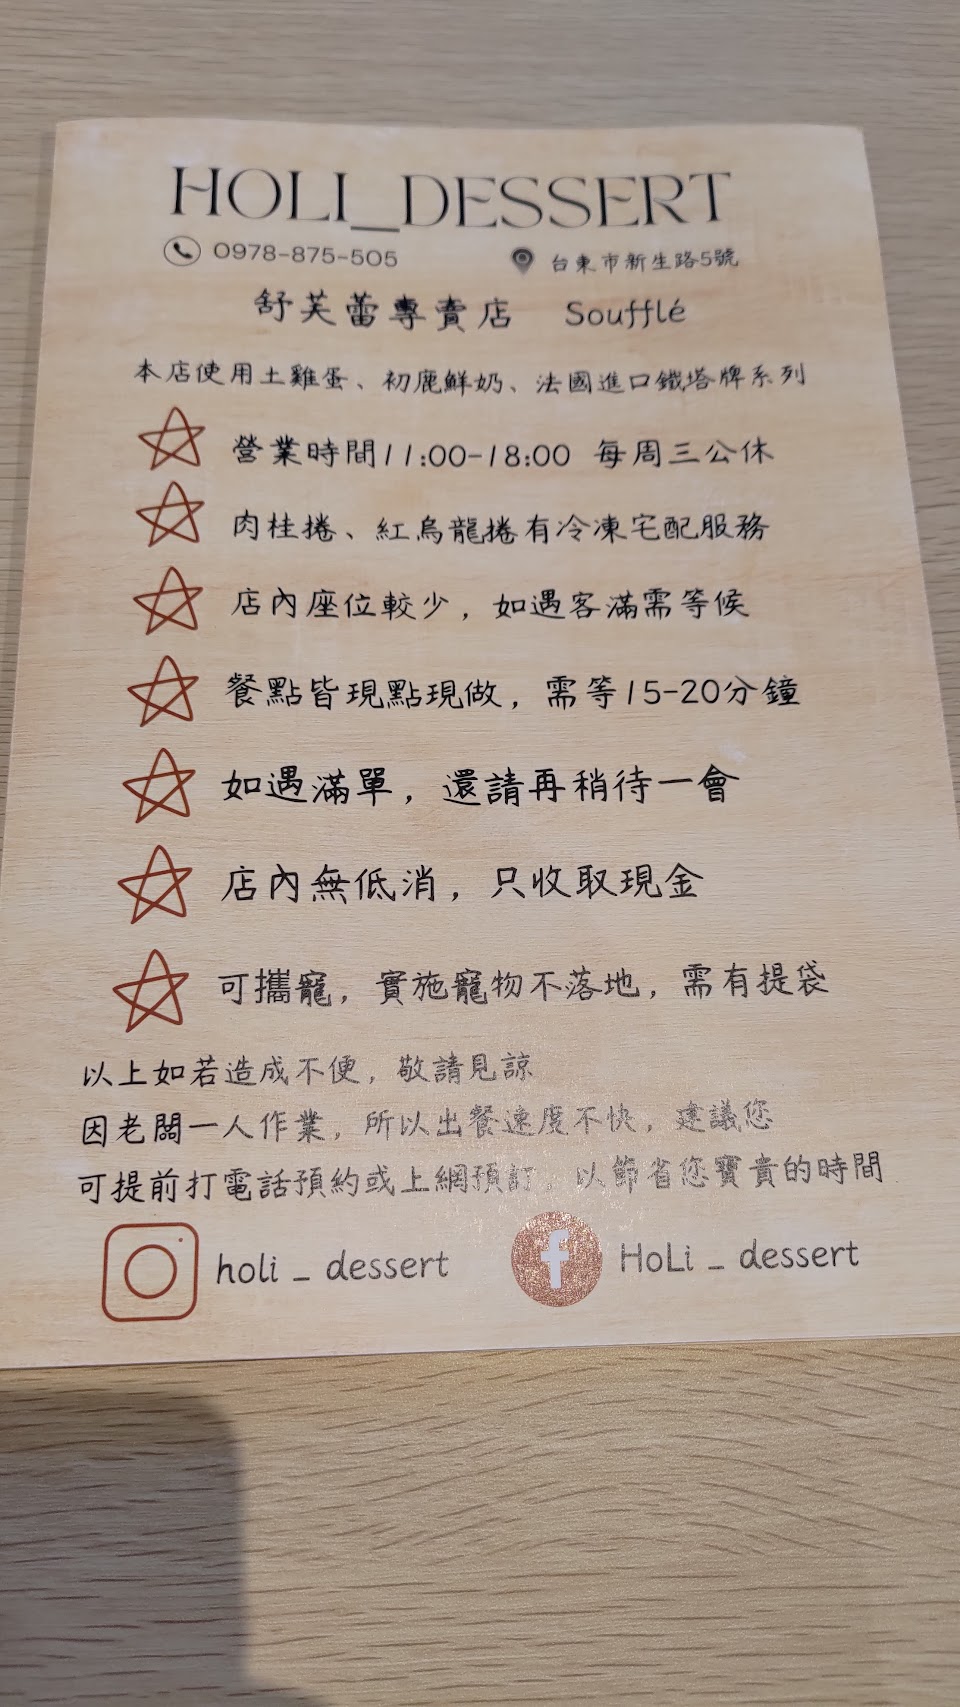 HOLI_DESSERT
0978-875-505 台東市新生路5號
舒芙蕾專賣店 Soufflé
本店使用土雞蛋、初鹿鮮奶、法國進口鐵塔牌系列
營業時間11:00-18:00 每周三公休
肉桂捲、紅烏龍捲有冷凍宅配服務
店內座位較少，如遇客滿需等候
餐點皆現點現做，需等15-20分鐘
如遇滿單，還請再稍待一會
店內無低消，只收取現金
可攜寵，實施寵物不落地，需有提袋
以上如若造成不便，敬請見諒
因老闆一人作業，所以出餐速度不快，建議您
可提前打電話預約或上網預訂，以節省您寶貴的時間
holi _ dessert HoLi _ dessert